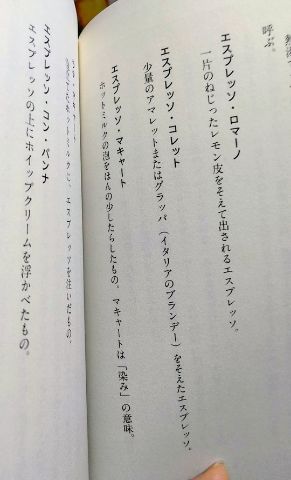 呼ぶ。
エスプレッソ・ロマーノ
一片のねじったレモン皮をそえて出されるエスプレッソ。
エスプレッソ・コレット
少量のアマレットまたはグラッパ（イタリアのブランデー）をそえたエスプレッソ。
エスプレッソ・マキャート
ホットミルクの泡をほんの少したらしたもの。マキャートは「染み」の意味。
ホットミルクに、エスプレッソを注いだもの。
エスプレッソ・コン・パンナ
エスプレッソの上にホイップクリームを浮かべたもの。